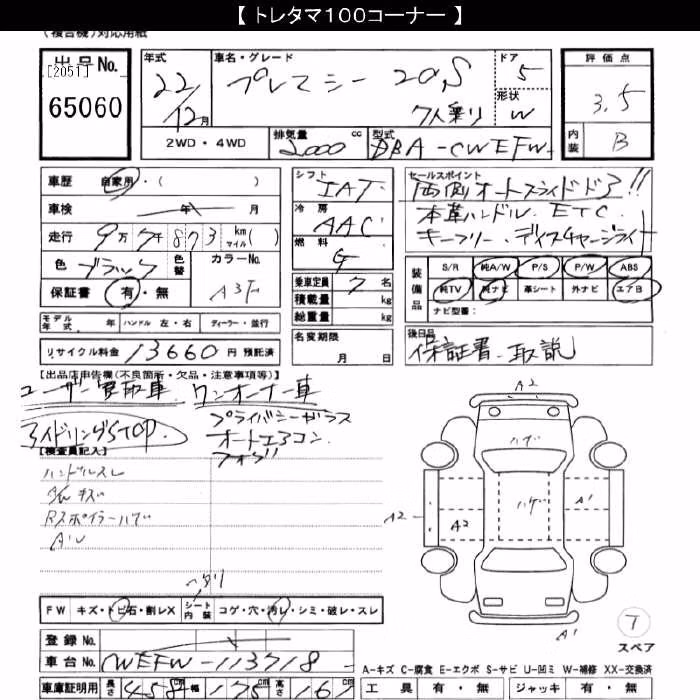 【 トレタマ100コーナー 】
(複合機)対応用紙
出品No.
[2051]
65060
年式
22/12月
車名・グレード
プレマシー 20S
7人乗り
ドア
5
形状
W
評価点
3.5
内装
B
2WD・4WD
排気量 2,000 cc
型式 DBA-CWEFW-
車歴 自家用・( )
車検 年 月
走行 9万7千873 km(マイル)
色 ブラック 色替
カラーNo. A3F
保証書 有・無
シフト IAT
冷房 AAC
燃料 G
乗車定員 7名
積載量 kg
総重量 kg
名変期限
月 日
セールスポイント
両側オートスライドドア!!
本革ハンドル. ETC.
キーフリー. ディスチャージライト
装備品
S/R 純A/W P/S P/W ABS
純TV 純ナビ 革シート 外ナビ エアB
ナビ型番:
モデル年式 年 ハンドル 左・右 ディーラー・並行
リサイクル料金 13660 円 預託済
後日品
保証書. 取説
【出品店申告欄(不良箇所・欠品・注意事項等)】
ユーザー買取車. ワンオーナー車
プライバシーガラス
アイドリングSTOP
オートエアコン
フォグ
【検査員記入】
ハンドルスレ
キズ
Rスポイラーハゲ
A2
ハゲ
ハゲ
A2
A2
A1
A1
7
スペア
FW キズ・トビ石・割レX シート内装 コゲ・穴・汚レ・シミ・破レ・スレ
登録No.
車台No. CWEFW-113718-
A-キズ C-腐食 E-エクボ S-サビ U-凹ミ W-補修 XX-交換済
車庫証明用 長さ 458cm 幅 175cm 高さ 167
工具 有・無 ジャッキ 有・無